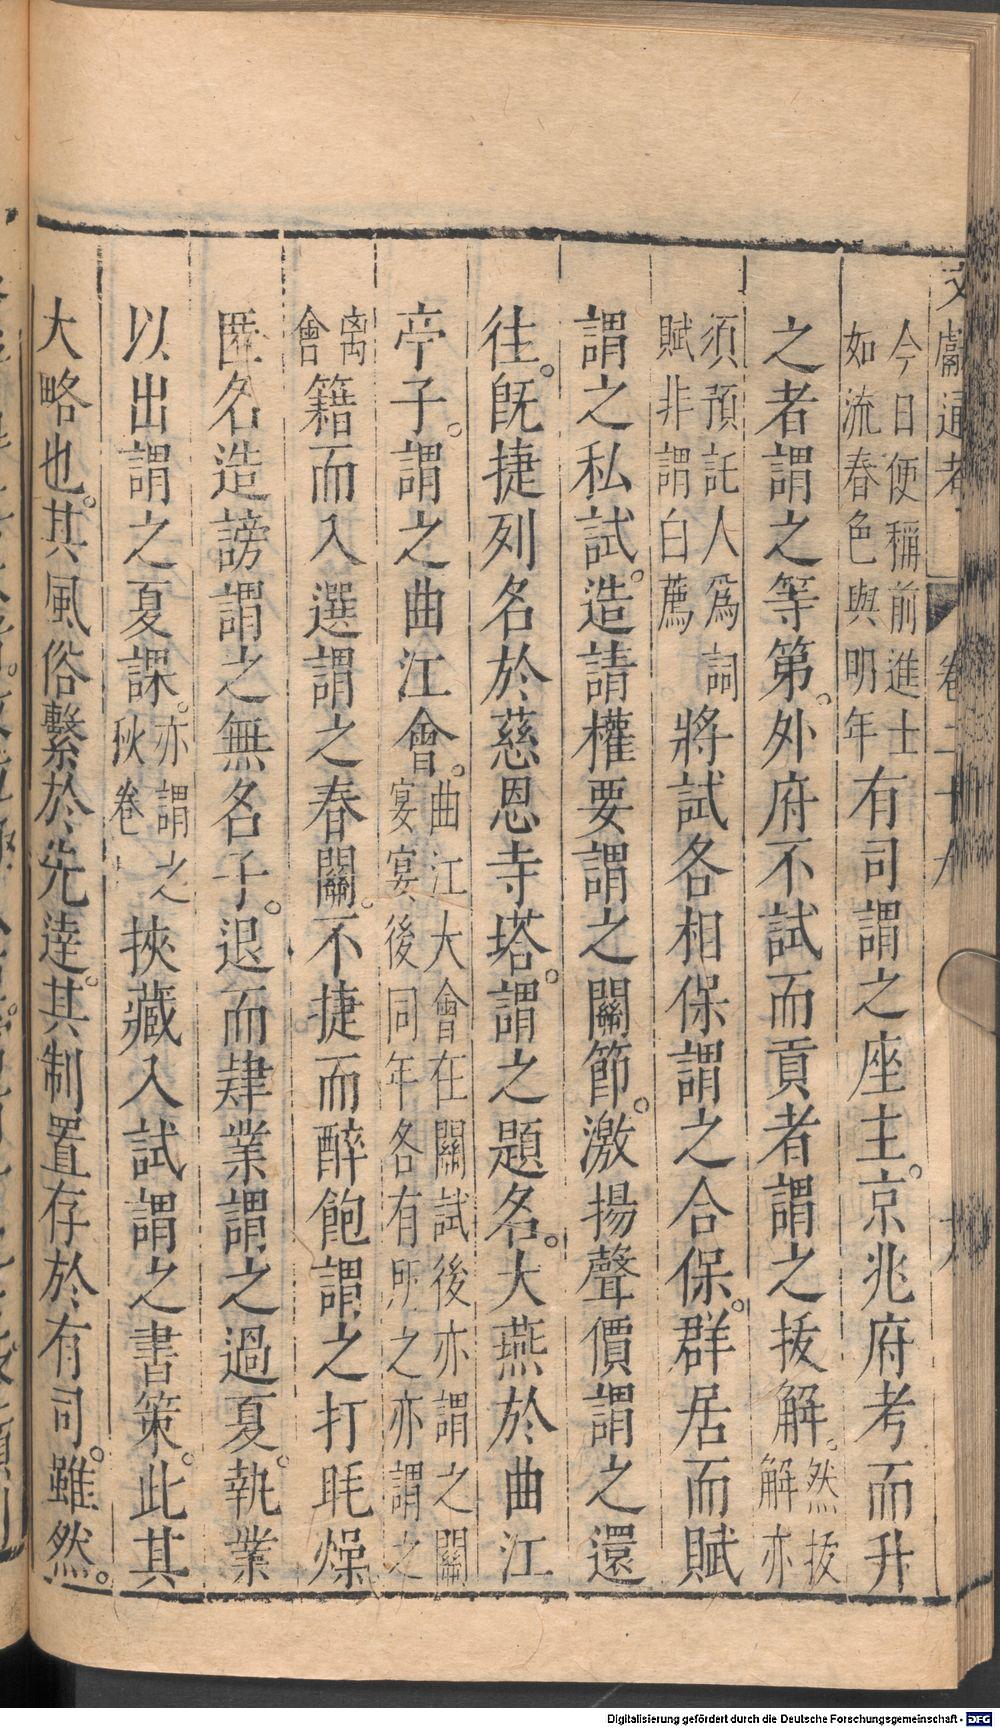 文獻通考 卷二十九
今日便稱前進士
如流春色與明年
有司謂之座主。京兆府考而升
之者謂之等第。外府不試而貢者謂之拔解。
然拔
解亦
須預託人爲詞
賦非謂白薦
將試各相保謂之合保。群居而賦
謂之私試。造請權要謂之關節。激揚聲價謂之還
往。旣捷列名於慈恩寺塔。謂之題名。大燕於曲江
亭子。謂之曲江會。
曲江大會在關試後亦謂之關
宴宴後同年各有所之亦謂之
离
會
籍而入選謂之春關。不捷而醉飽謂之打毷燥
匿名造謗謂之無名子。退而肄業謂之過夏。執業
以出謂之夏課。
亦謂之
秋卷
挾藏入試謂之書策。此其
大略也。其風俗繫於先達。其制置存於有司。雖然。
Digitalisierung gefördert durch die Deutsche Forschungsgemeinschaft - DFG